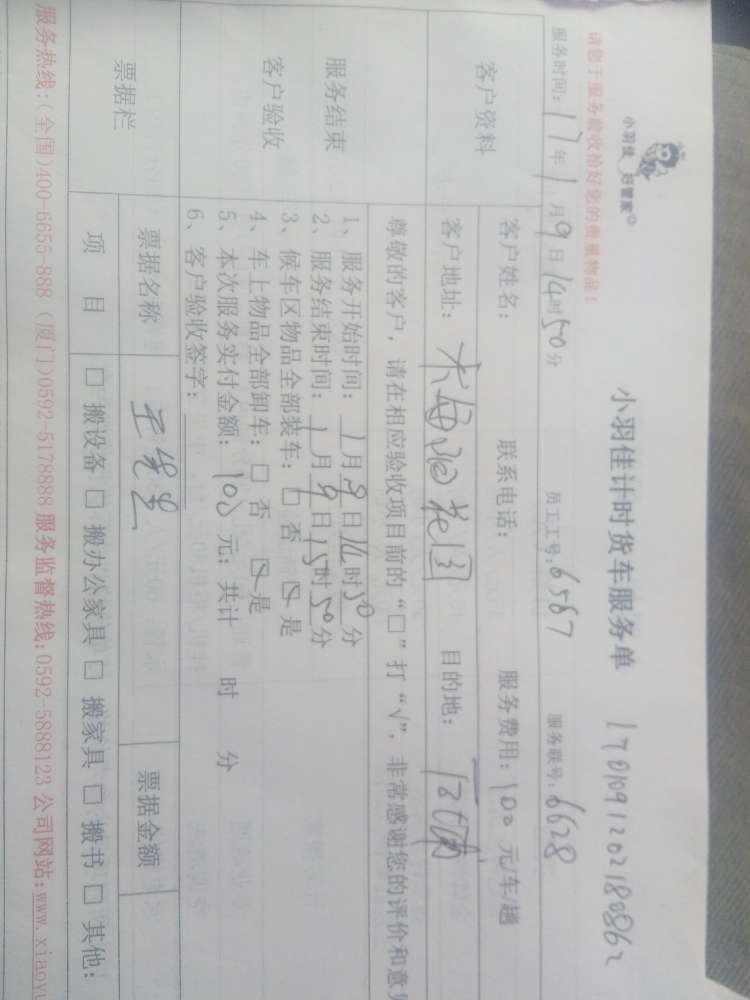 小羽佳 好管家
小羽佳计时货车服务单
请您于服务验收恰好您的贵重物品！
服务时间：17年1月9日14时50分 员工工号：6567 服务联号：6628
客户资料
客户姓名： 联系电话： 服务费用：100元/车/趟
客户地址： 目的地：
尊敬的客户，请在相应验收项目前的“□”打“√”，非常感谢您的评价和意
服务结束
客户验收
1、服务开始时间：1月9日14时50分
2、服务结束时间：1月9日15时50分
3、候车区物品全部装车：□ 否 ☑ 是
4、车上物品全部卸车：□ 否 ☑ 是
5、本次服务实付金额：100元；共计 时 分
6、客户验收签字：
票据栏
票据名称 票据金额
项 目 □ 搬设备 □ 搬办公家具 □ 搬家具 □ 搬书 □ 其他：
服务热线：（全国）400-6655-888（厦门）0592-5178888 服务监督热线：0592-5888123 公司网站：www.xiaoyu